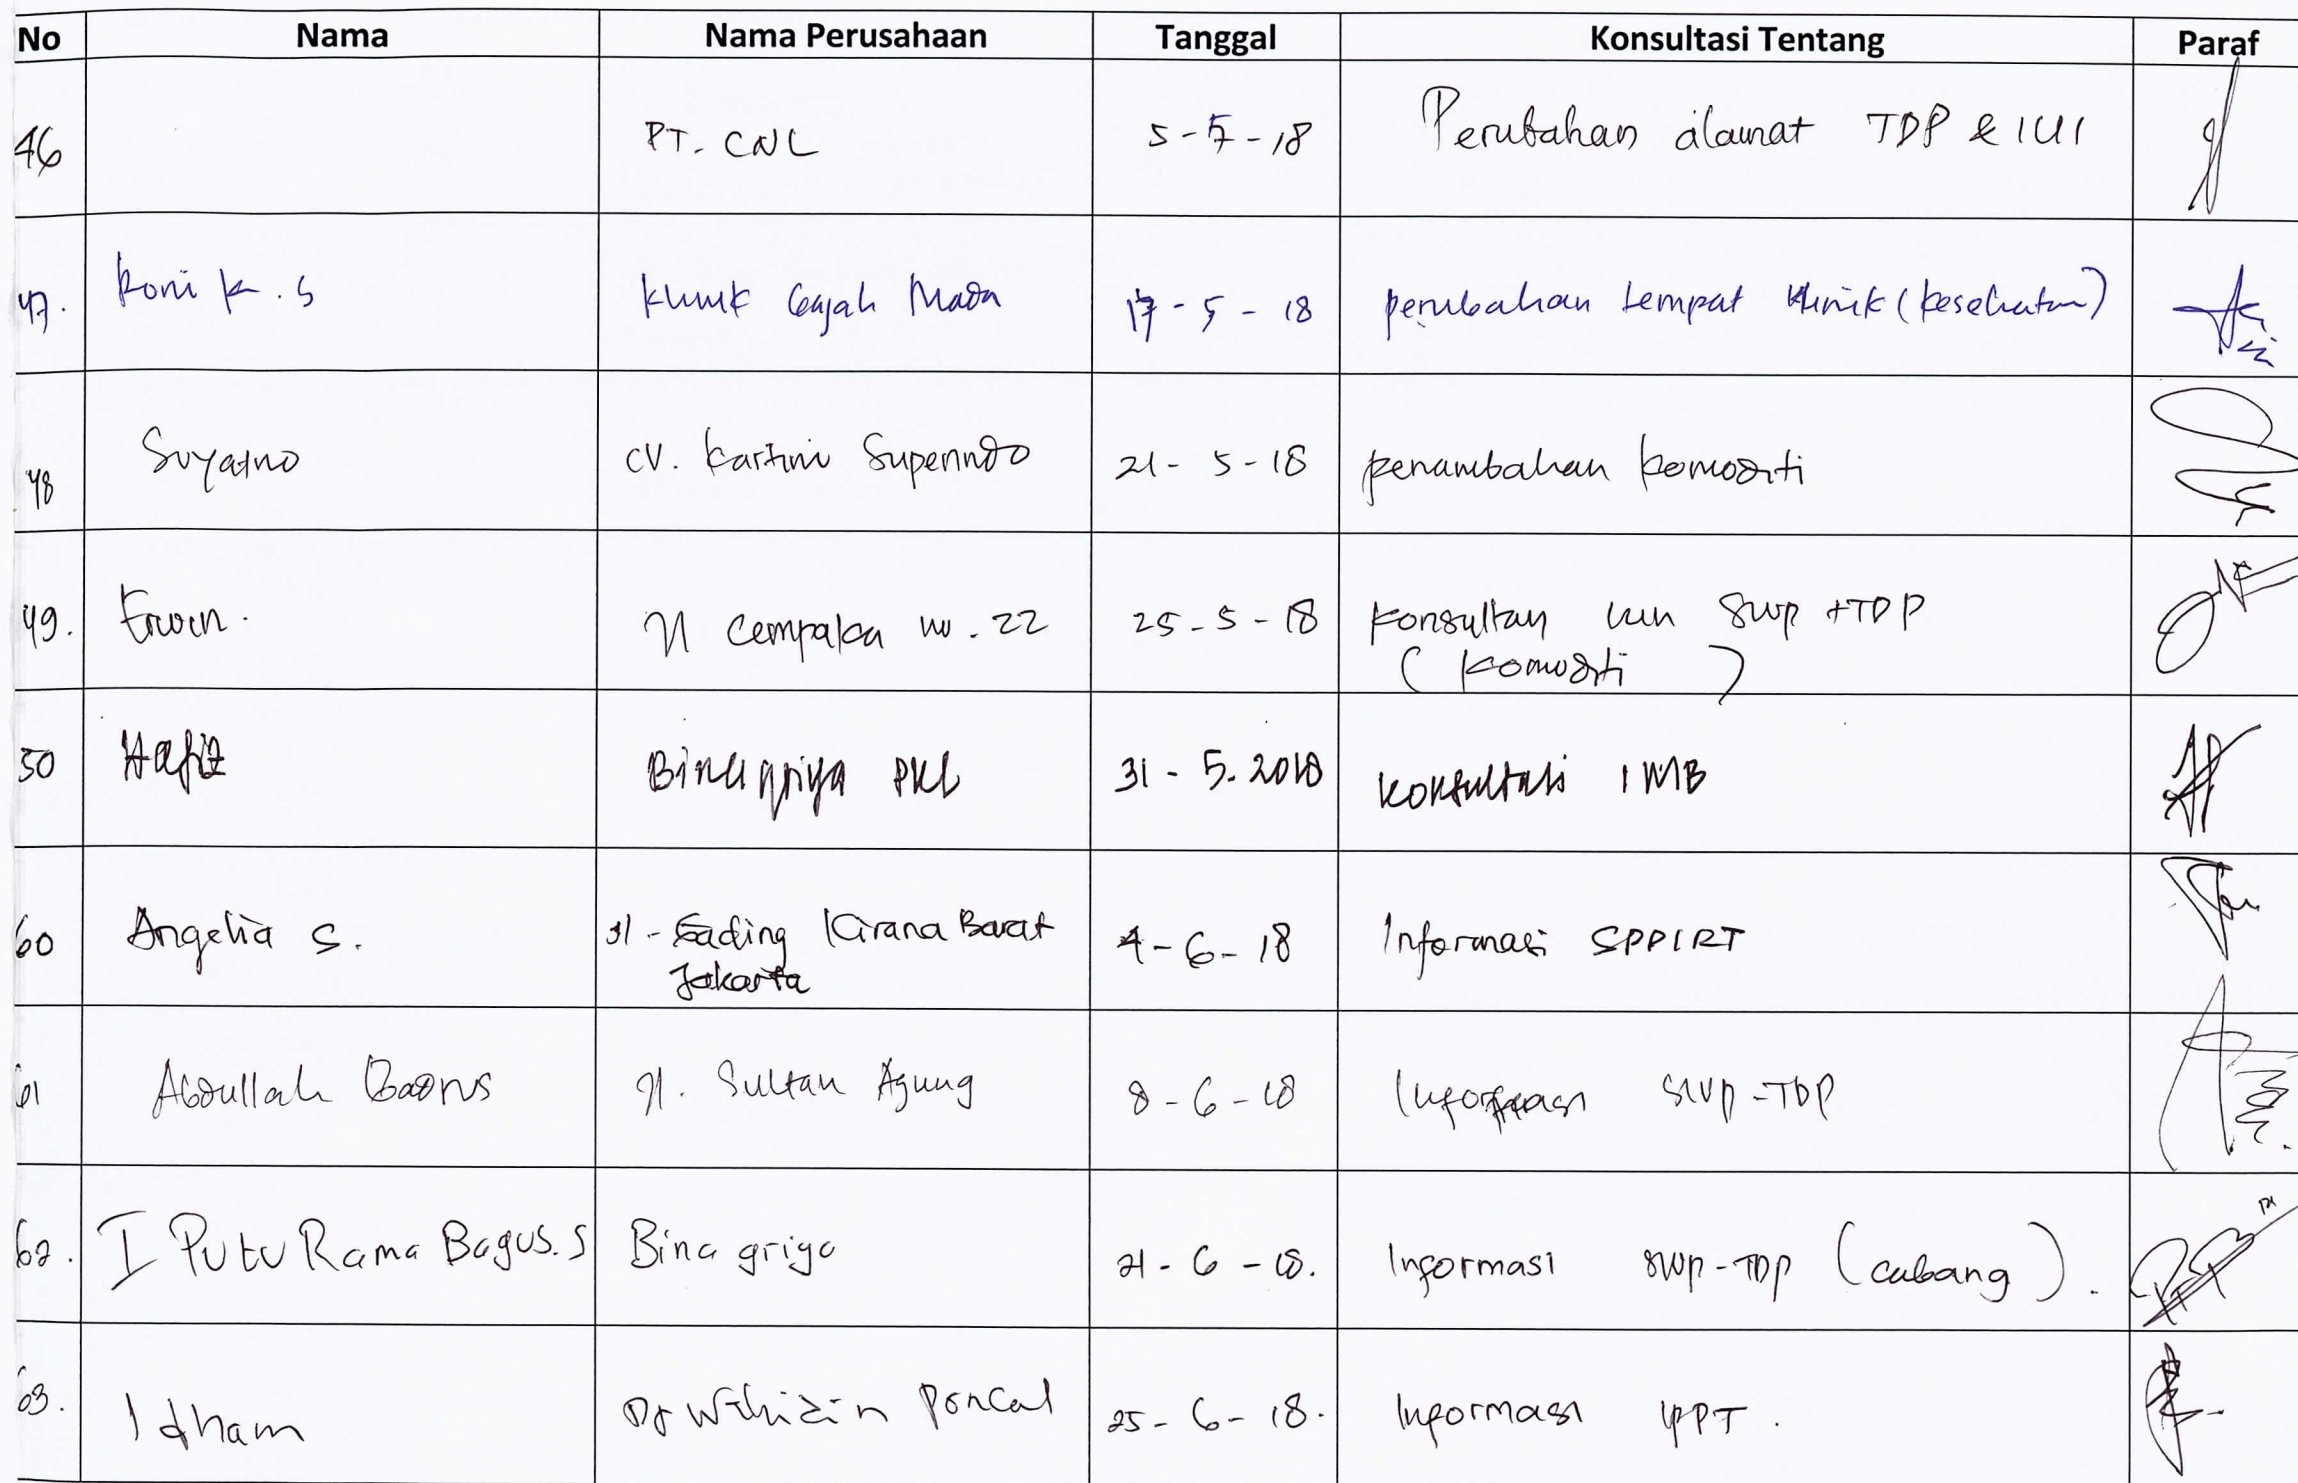 No Nama Nama Perusahaan Tanggal Konsultasi Tentang Paraf
46 PT. CNL 5-5-18 Perubahan alamat TDP & IUI
47. Roni K. S Klinik Gajah Mada 17-5-18 perubahan tempat klinik (kesehatan)
48 Suyatno CV. Kartini Superindo 21-5-18 penambahan komoditi
49. Erwin. Jl Cempaka no. 22 25-5-18 Konsultan SIUP + TDP
(Komoditi)
50 Hafiz Binagriya PKL 31-5.2018 Konsultasi IMB
60 Angelia S. Jl-Gading Kirana Barat 4-6-18 Informasi SPPIRT
Jakarta
61 Abdullah Jl. Sultan Agung 8-6-18 Informasi SIUP-TDP
62. I Putu Rama Bagus.S Bina griya 21-6-18. Informasi SIUP-TDP (cabang).
63. Idham Dr 25-6-18. Informasi IPPT.